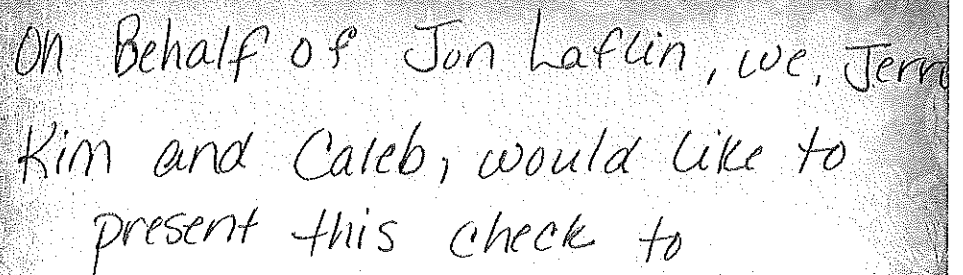 On Behalf of Jon Laflin, we, Jerr
Kim and Caleb, would like to
present this check to